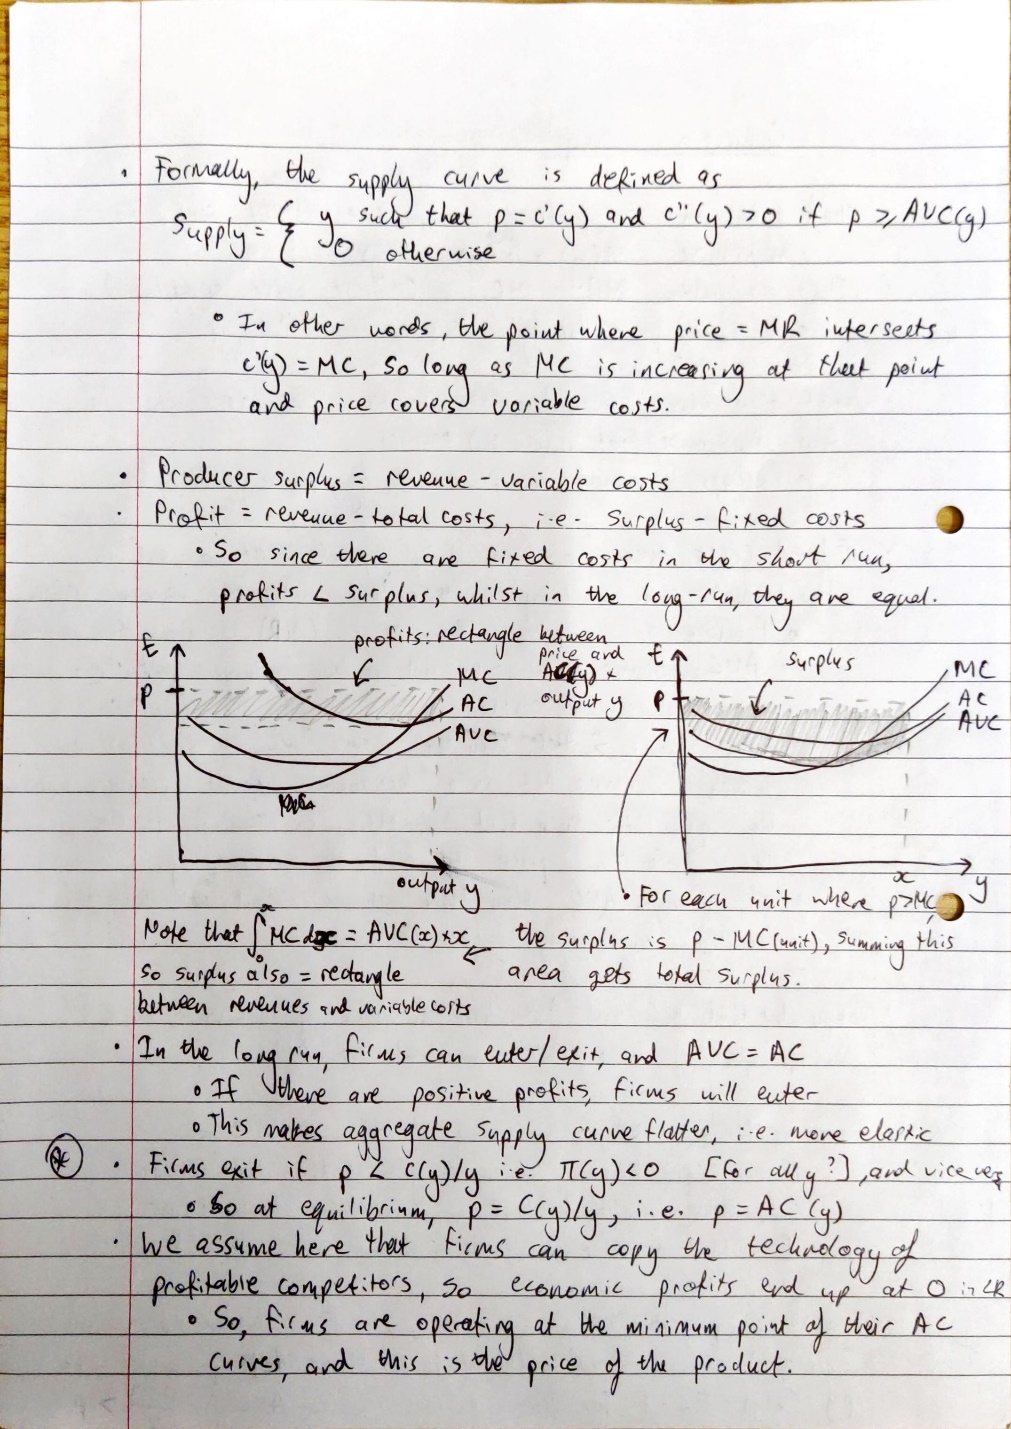 Formally, the supply curve is defined as
Supply = { y such that p = c'(y) and c''(y) > 0 if p ≥ AVC(y)
0 otherwise
In other words, the point where price = MR intersects
c'(y) = MC, so long as MC is increasing at that point
and price covers variable costs.
Producer surplus = revenue - variable costs
Profit = revenue - total costs, i.e. surplus - fixed costs
So since there are fixed costs in the short run,
profits < surplus, whilst in the long-run, they are equal.
profits: rectangle between
price and
AC(y) ×
output y
£
P
MC
AC
AVC
output y
£
P
surplus
MC
AC
AVC
x
y
For each unit where p>MC,
the surplus is p - MC(unit), summing this
area gets total surplus.
Note that ∫₀ˣ MC dx = AVC(x)*x
so surplus also = rectangle
between revenues and variable costs
In the long run, firms can enter/exit, and AVC = AC
If there are positive profits, firms will enter
This makes aggregate supply curve flatter, i.e. more elastic
Firms exit if p < c(y)/y i.e. π(y)<0 [for all y?], and vice vers
So at equilibrium, p = C(y)/y, i.e. p = AC(y)
We assume here that firms can copy the technology of
profitable competitors, so economic profits end up at 0 in LR
So, firms are operating at the minimum point of their AC
curves, and this is the price of the product.